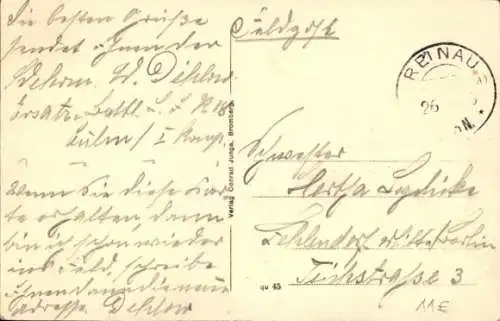 Die besten Grüße
sendet Ihnen der
Wehrm. W. Dehlow
Ersatz-Batl. L. I. R. 18
Culm / I Komp.
Wenn Sie diese Kar-
te erhalten, dann
bin ich schon wieder
ins Feld, schreibe
Ihnen dann die neue
Adresse. Dehlow
Verlag Conrad Junga, Bromberg
Feldpost
REINAU
26
Schwester
Hertha
Zehlendorf Mitte Berlin
Teichstraße 3
qu 45
11E